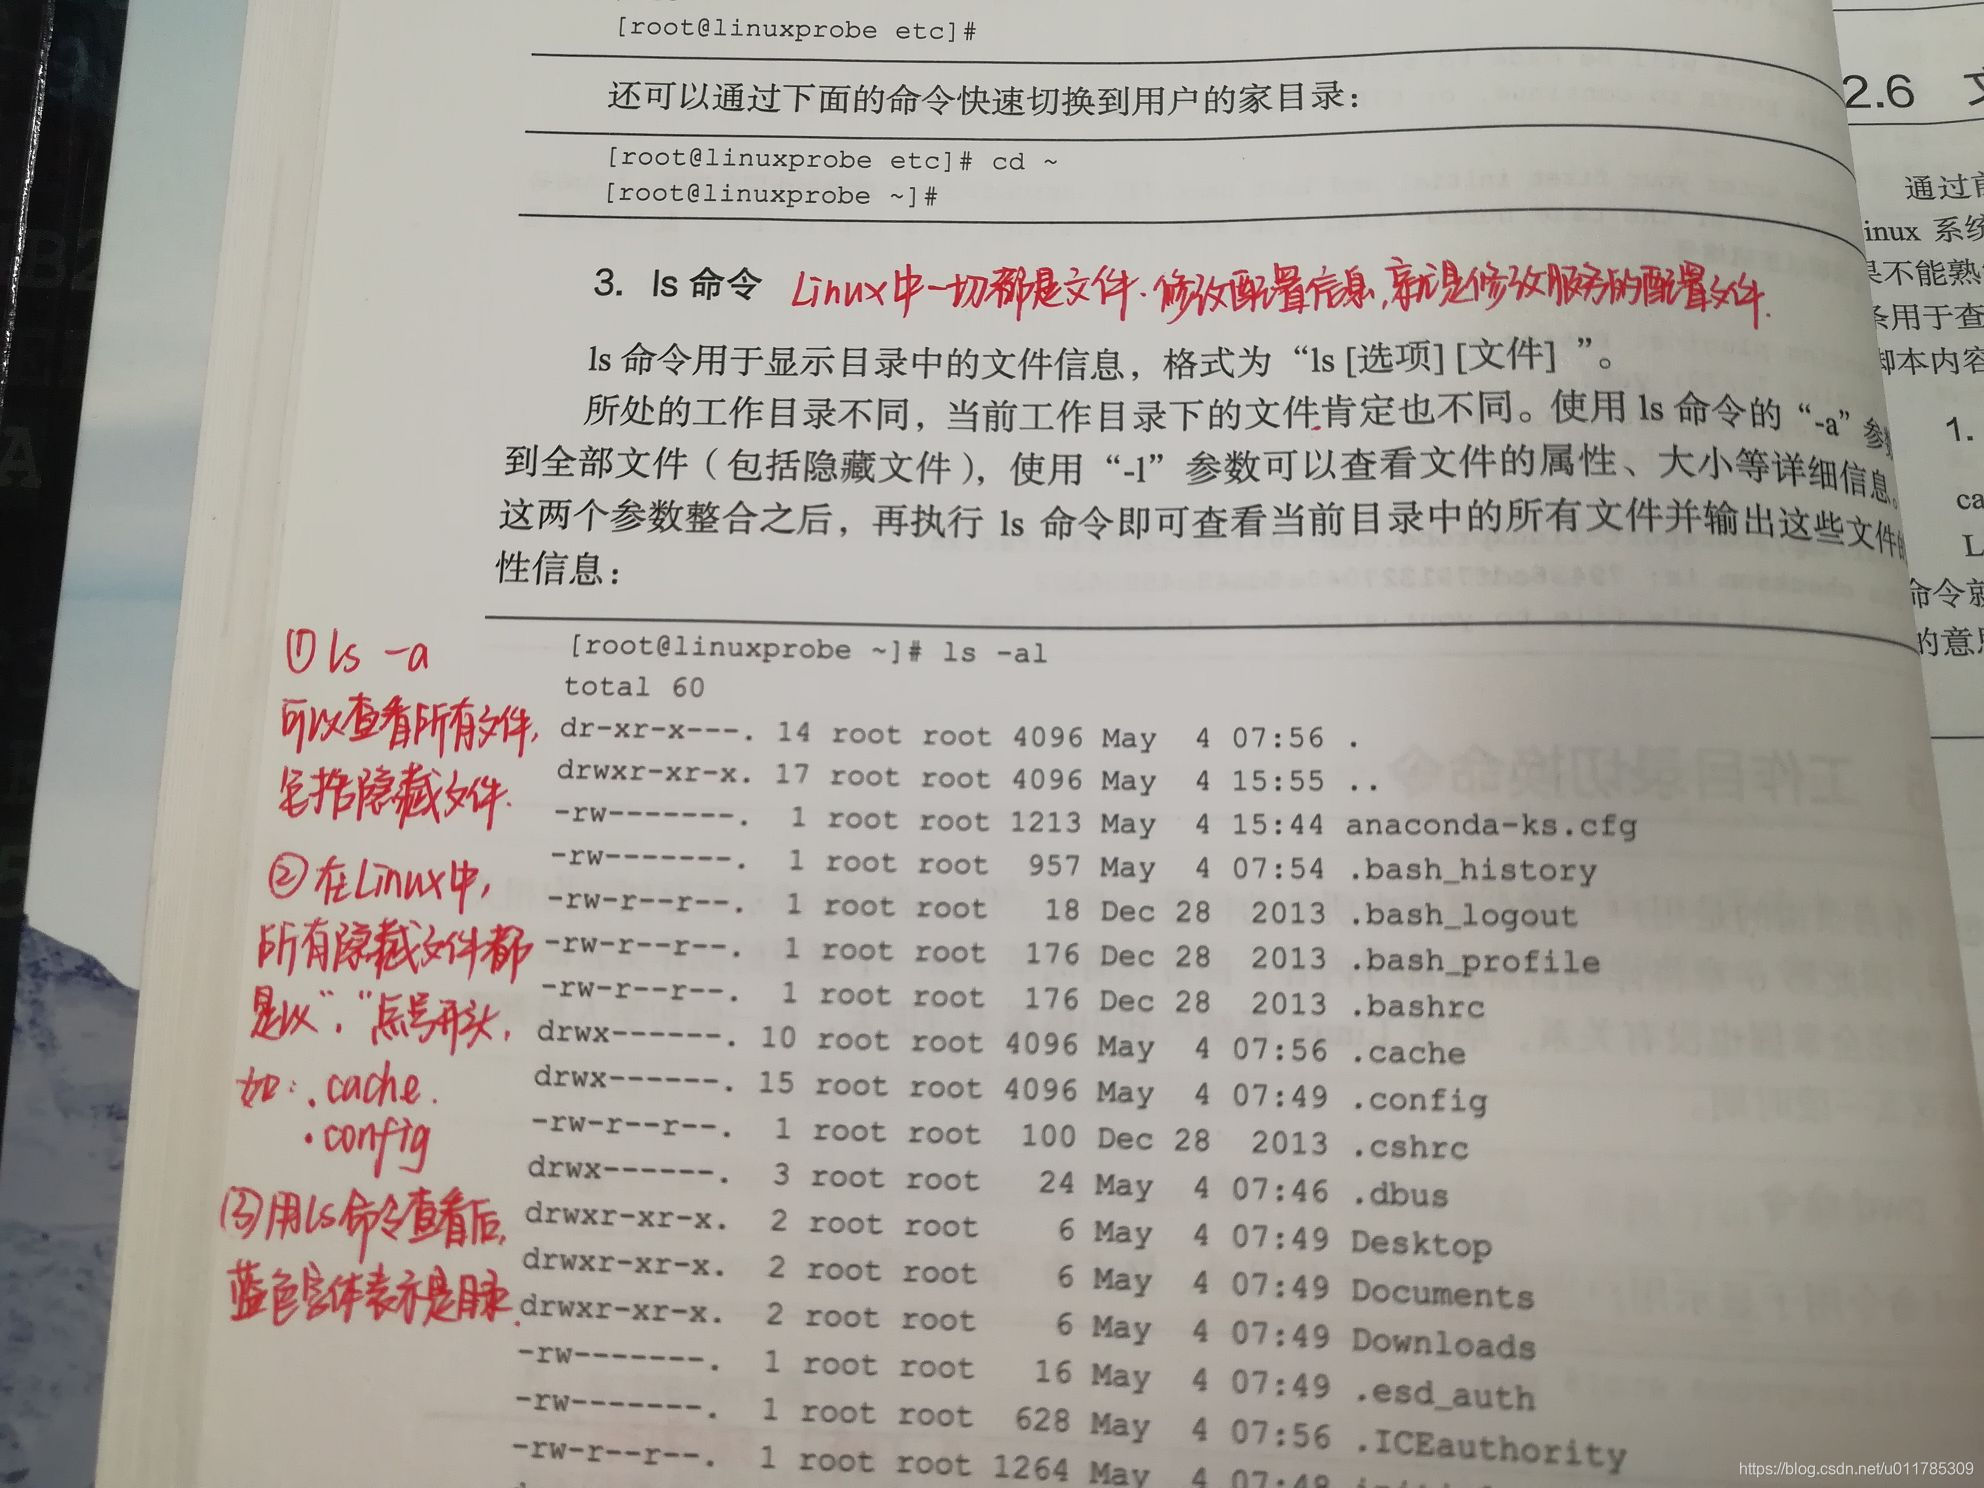 [root@linuxprobe etc]#
还可以通过下面的命令快速切换到用户的家目录：
[root@linuxprobe etc]# cd ~
[root@linuxprobe ~]#
3. ls 命令 Linux中一切都是文件.修改配置信息,就是修改服务的配置文件.
ls 命令用于显示目录中的文件信息，格式为“ls [选项] [文件] ”。
所处的工作目录不同，当前工作目录下的文件肯定也不同。使用 ls 命令的“-a”参
到全部文件（包括隐藏文件），使用“-l”参数可以查看文件的属性、大小等详细信息。
这两个参数整合之后，再执行 ls 命令即可查看当前目录中的所有文件并输出这些文件
性信息：
[root@linuxprobe ~]# ls -al
total 60
dr-xr-x---. 14 root root 4096 May 4 07:56 .
drwxr-xr-x. 17 root root 4096 May 4 15:55 ..
-rw-------. 1 root root 1213 May 4 15:44 anaconda-ks.cfg
-rw-------. 1 root root 957 May 4 07:54 .bash_history
-rw-r--r--. 1 root root 18 Dec 28 2013 .bash_logout
-rw-r--r--. 1 root root 176 Dec 28 2013 .bash_profile
-rw-r--r--. 1 root root 176 Dec 28 2013 .bashrc
drwx------. 10 root root 4096 May 4 07:56 .cache
drwx------. 15 root root 4096 May 4 07:49 .config
-rw-r--r--. 1 root root 100 Dec 28 2013 .cshrc
drwx------. 3 root root 24 May 4 07:46 .dbus
drwxr-xr-x. 2 root root 6 May 4 07:49 Desktop
drwxr-xr-x. 2 root root 6 May 4 07:49 Documents
drwxr-xr-x. 2 root root 6 May 4 07:49 Downloads
-rw-------. 1 root root 16 May 4 07:49 .esd_auth
-rw-------. 1 root root 628 May 4 07:56 .ICEauthority
-rw-r--r--. 1 root root 1264 May 4 07:48
①ls -a
可以查看所有文件,
包括隐藏文件.
②在Linux中,
所有隐藏文件都
是以“.”点号开头,
如: .cache.
.config
③用ls命令查看后,
蓝色字体表示是目录.
2.6 文
通过前
inux 系统
果不能熟
条用于查
脚本内容
1.
ca
L
命令就
的意思
https://blog.csdn.net/u011785309